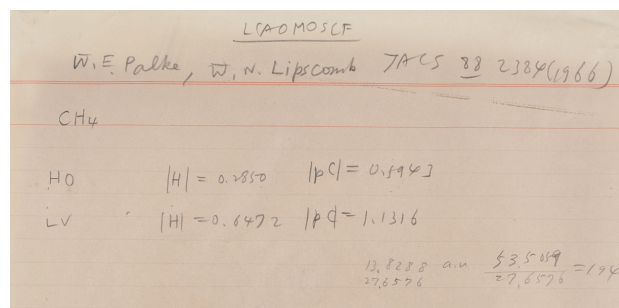 LCAOMOSCF
W. E. Palke, W. N. Lipscomb JACS 88 2384 (1966)
CH4
HO |H| = 0.2850 |pC| = 0.5943
LV |H| = 0.6472 |pC| = 1.1316
13.8288 a.u. 53.5059 = 194
27.6576 27.6576